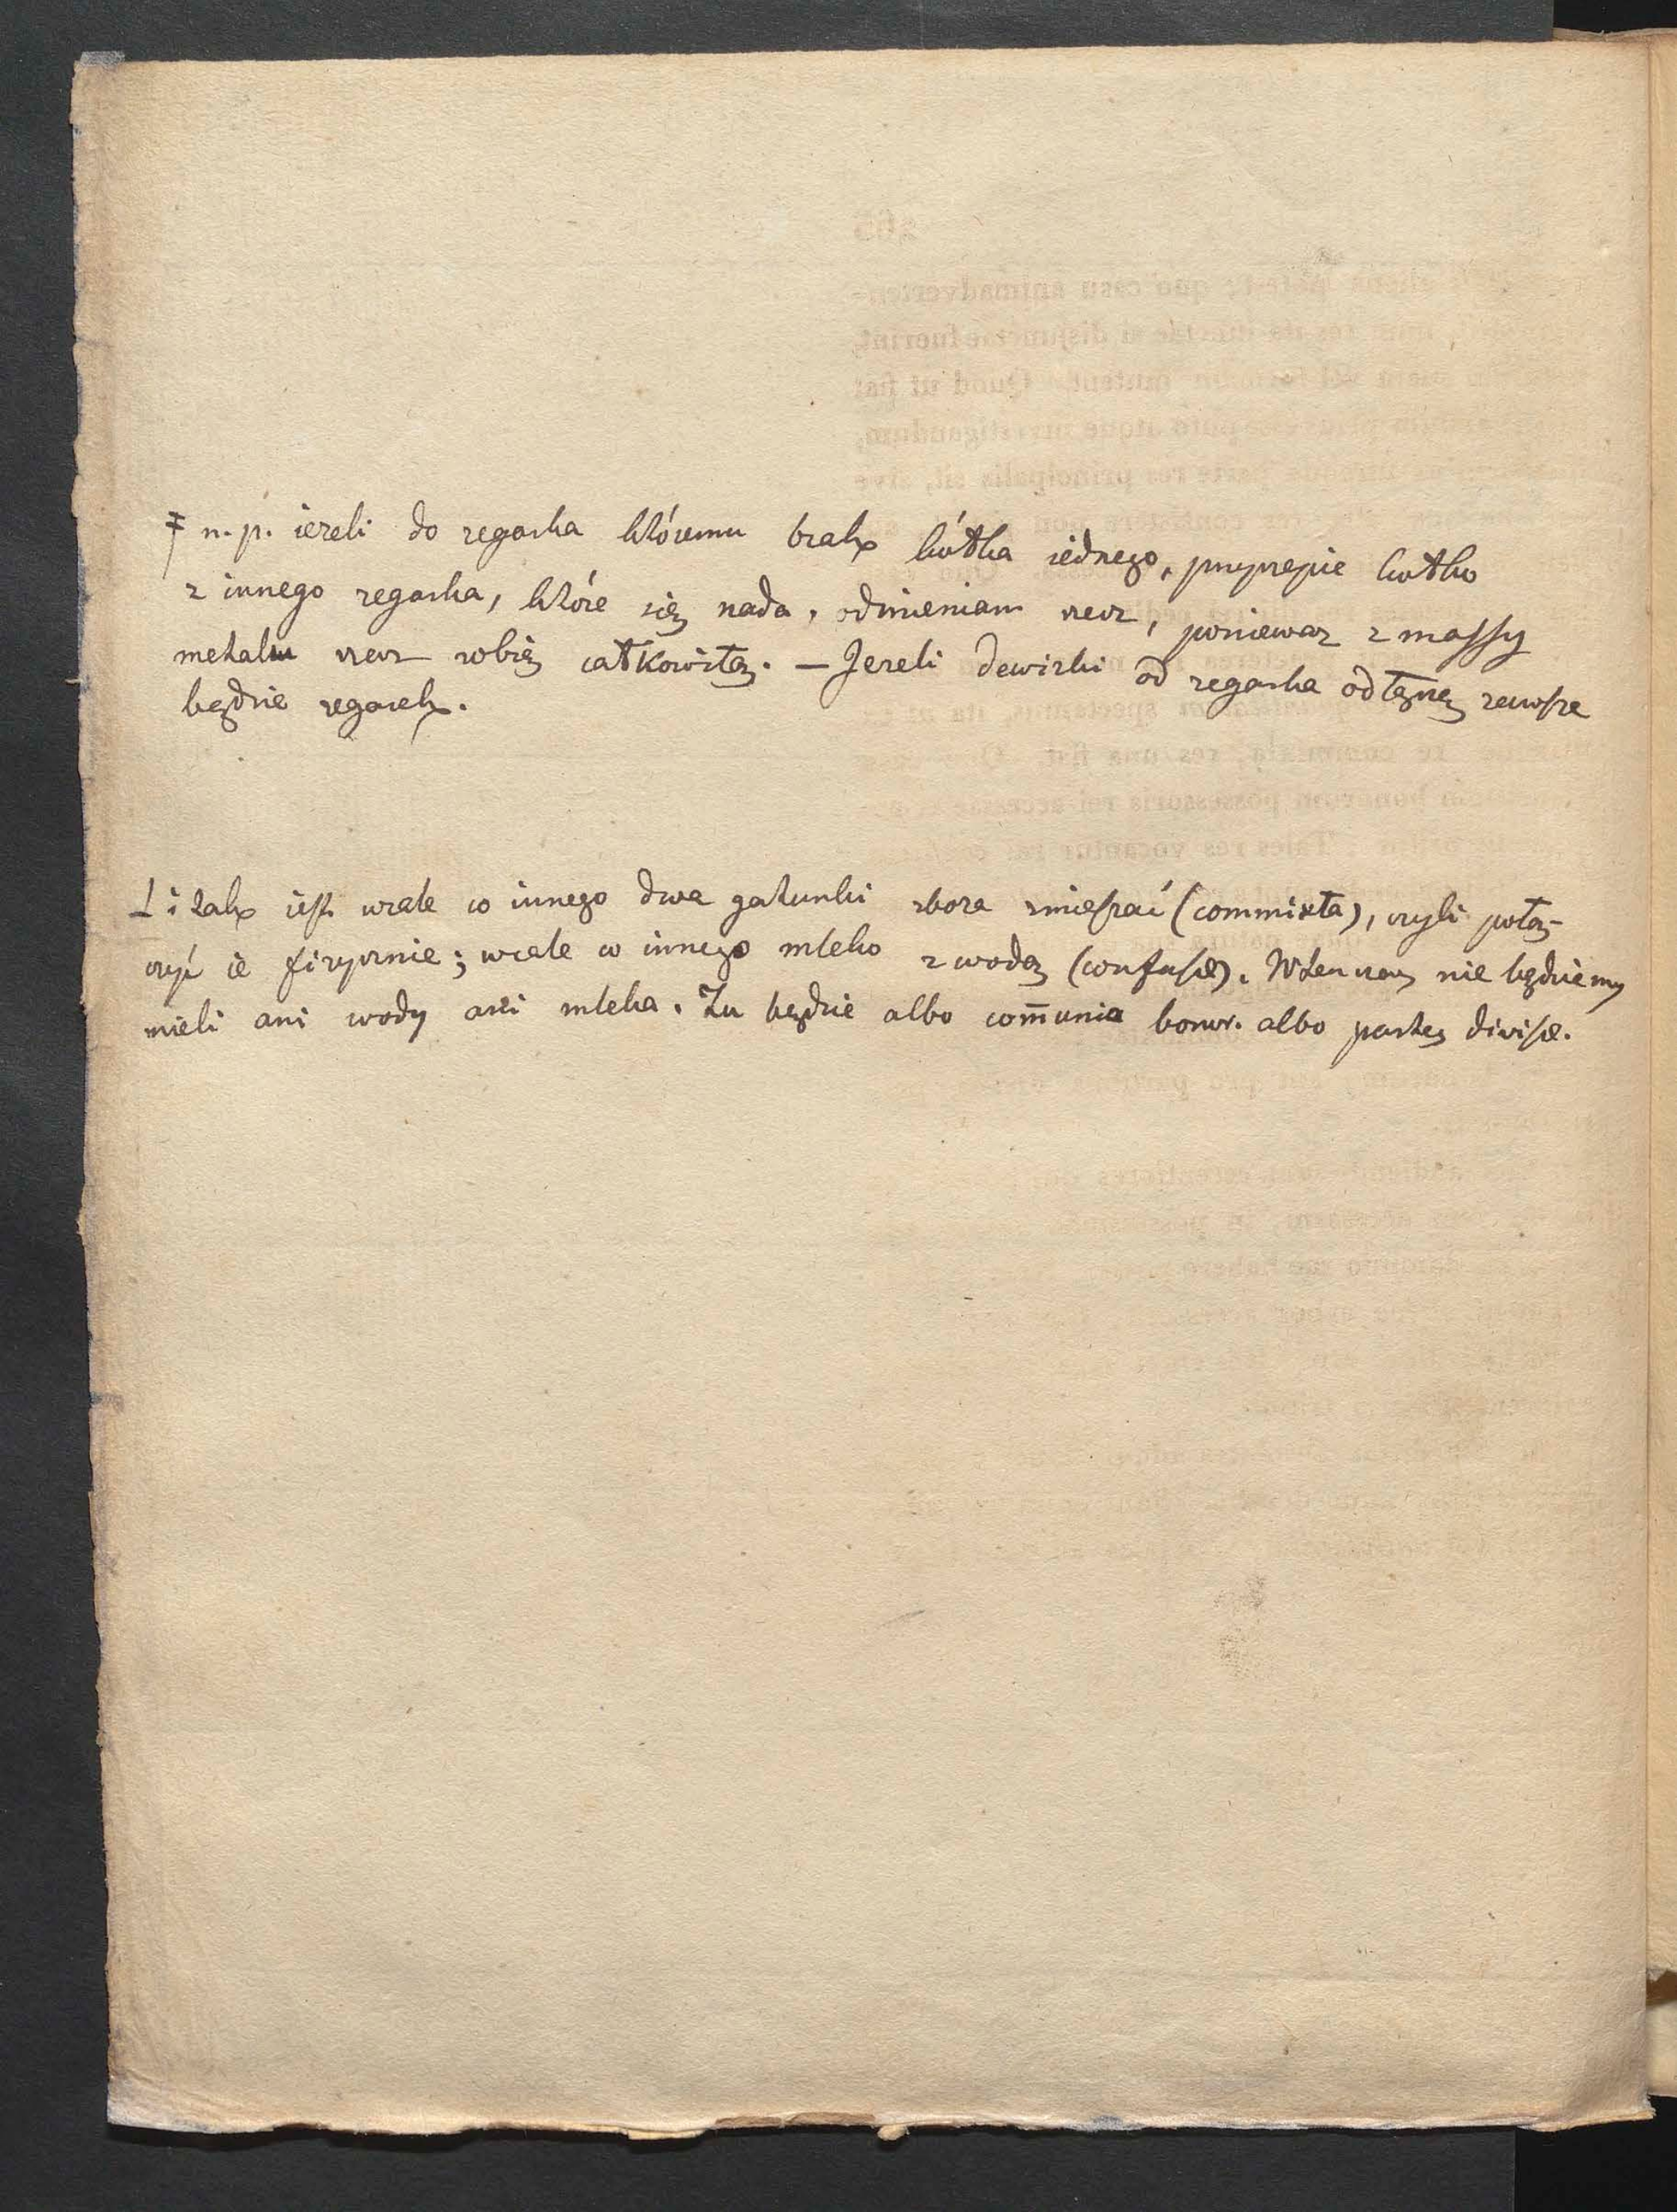 ‡ n. p. ieżeli do zegarka któremu brak kółka iednego, przyczepię kółko
z innego zegarka, które się nada, odmieniam rzecz, ponieważ z massy
metalu rzecz robię całkowitą. — Jeżeli dewizki od zegarka odłączę zawsze
będzie zegarek.
⊥ i tak iest wcale co innego dwa gatunki zboża zmieszać (commixta), czyli połą-
czyć ie fizycznie; wcale co innego mleko z wodą (confusæ). Wtenczas nie będziemy
mieli ani wody ani mleka. Tu będzie albo com̄unia bonor. albo partes divisæ.